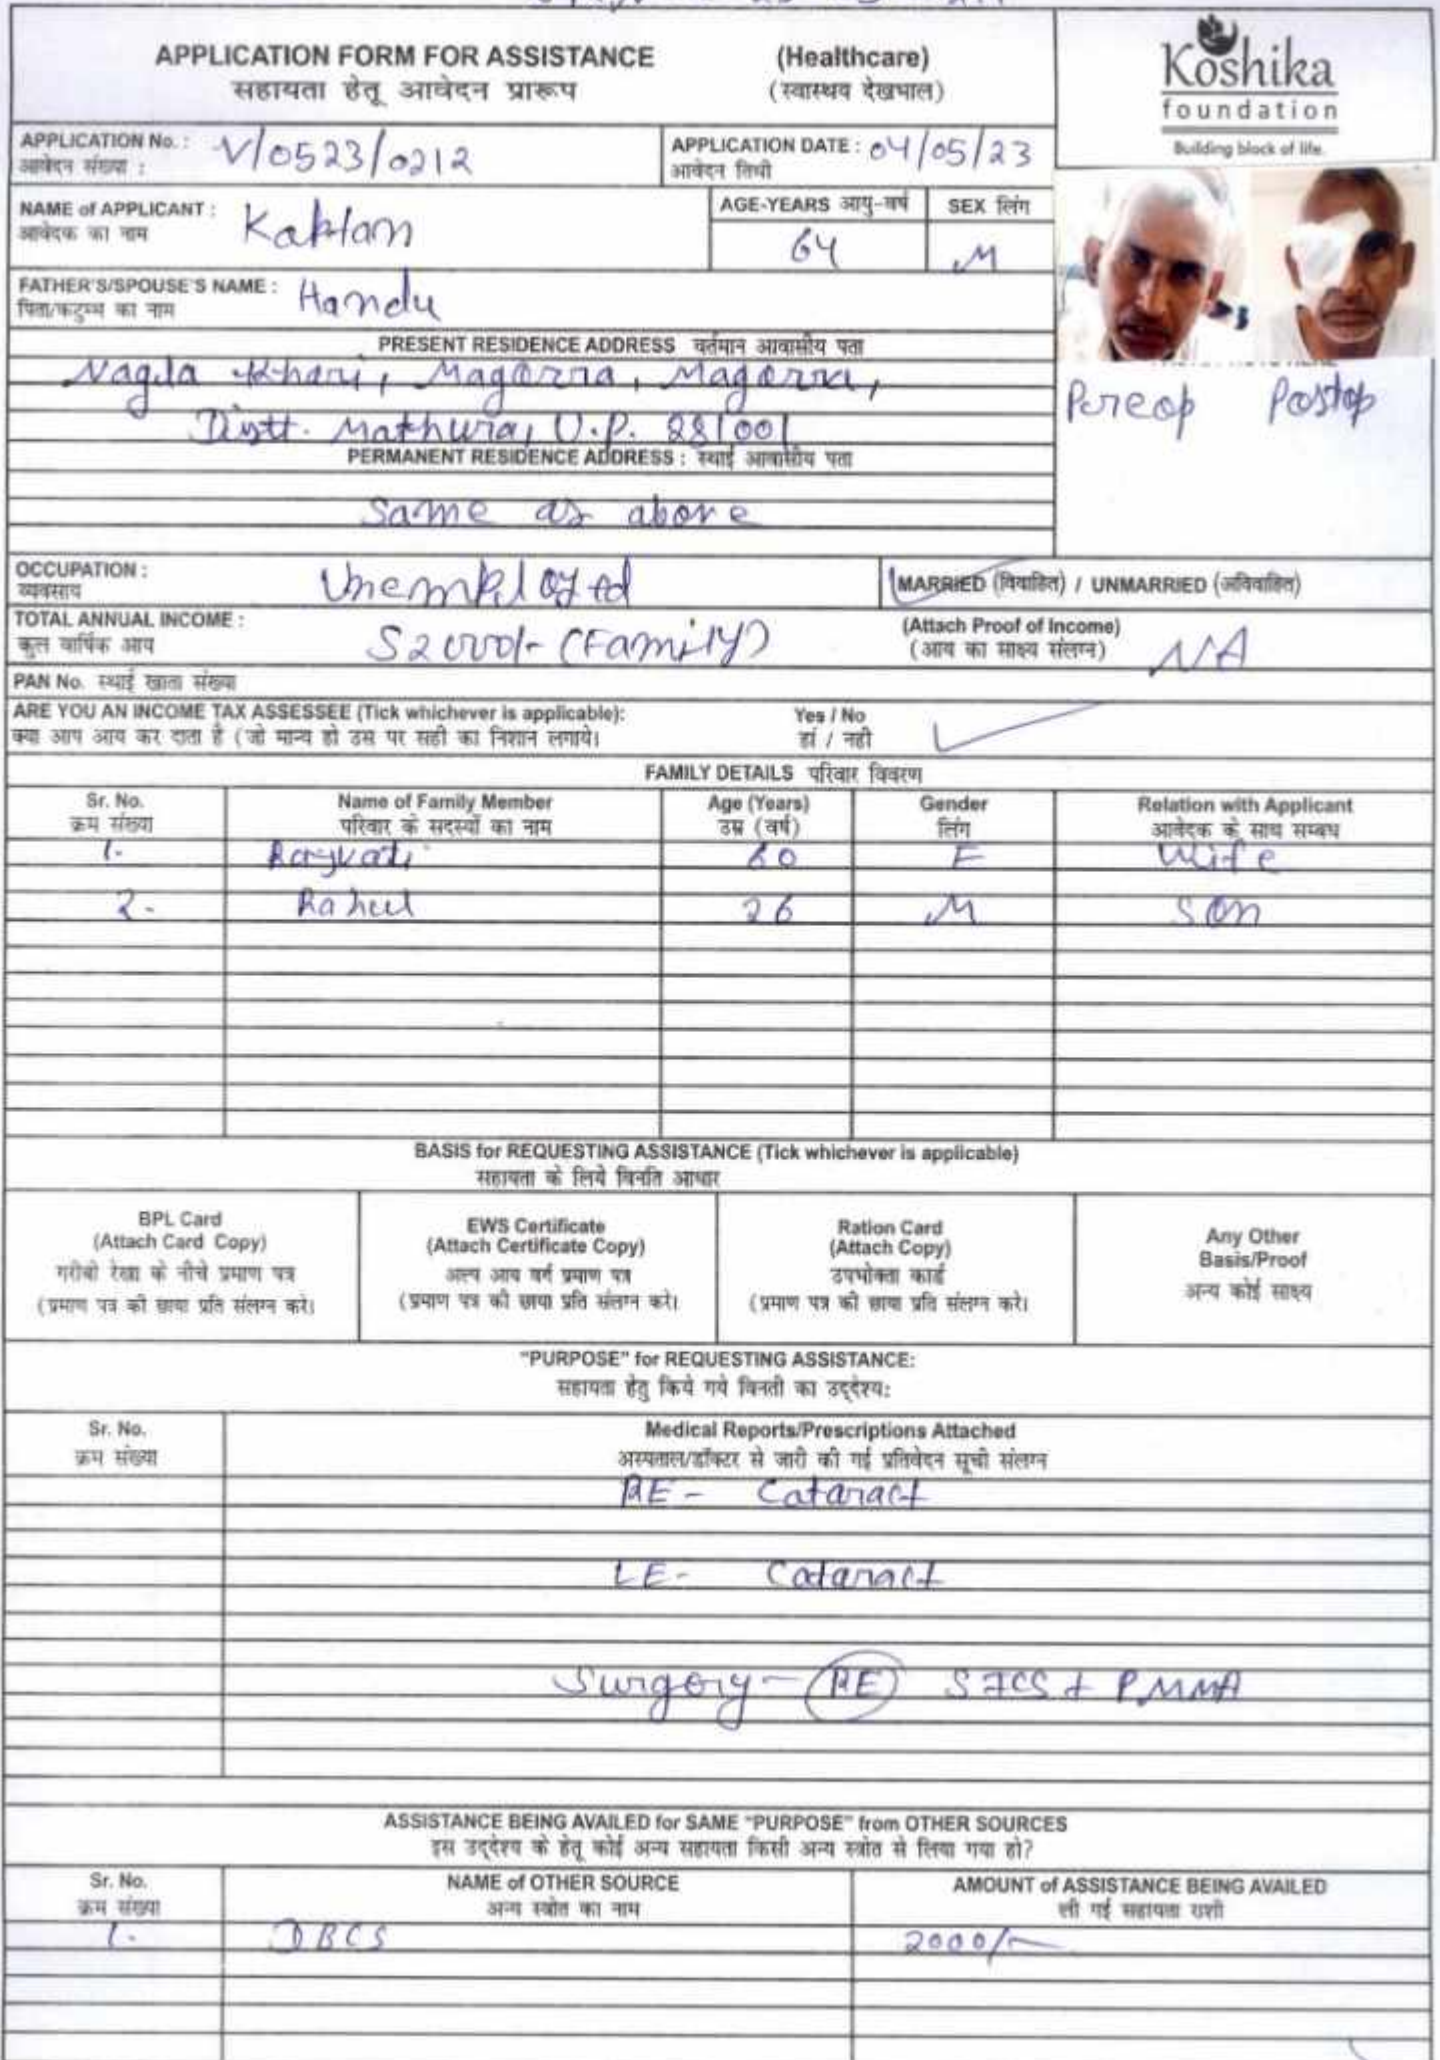 APPLICATION FORM FOR ASSISTANCE (Healthcare)
सहायता हेतू आवेदन प्रारूप (स्वास्थय देखभाल)
Koshika
foundation
Building block of life.
APPLICATION No. : V/0523/0212
आवेदन संख्या :
APPLICATION DATE : 04/05/23
आवेदन तिथी
NAME of APPLICANT : Kaptan
आवेदक का नाम
AGE-YEARS आयु-वर्ष 64
SEX लिंग M
FATHER'S/SPOUSE'S NAME : Handu
पिता/कटुम्ब का नाम
PRESENT RESIDENCE ADDRESS वर्तमान आवासीय पता
Nagla Khari, Magorra, Magorra,
Distt. Mathura, U.P. 281001
Preop Postop
PERMANENT RESIDENCE ADDRESS : स्थाई आवासीय पता
Same as above
OCCUPATION : Unemployed
व्यवसाय
MARRIED (विवाहित) / UNMARRIED (अविवाहित)
TOTAL ANNUAL INCOME : 52000/- (Family)
कुल वार्षिक आय
(Attach Proof of Income) NA
(आय का साक्ष्य संलग्न)
PAN No. स्थाई खाता संख्या
ARE YOU AN INCOME TAX ASSESSEE (Tick whichever is applicable): Yes / No
क्या आप आय कर दाता है (जो मान्य हो उस पर सही का निशान लगाये। हां / नही
FAMILY DETAILS परिवार विवरण
Sr. No. Name of Family Member Age (Years) Gender Relation with Applicant
क्रम संख्या परिवार के सदस्यों का नाम उम्र (वर्ष) लिंग आवेदक के साथ सम्बध
1. 60 F Wife
2. Rahul 26 M Son
BASIS for REQUESTING ASSISTANCE (Tick whichever is applicable)
सहायता के लिये विनति आधार
BPL Card
(Attach Card Copy)
गरीबी रेखा के नीचे प्रमाण पत्र
(प्रमाण पत्र की छाया प्रति संलग्न करे।
EWS Certificate
(Attach Certificate Copy)
अल्प आय वर्ग प्रमाण पत्र
(प्रमाण पत्र की छाया प्रति संलग्न करे।
Ration Card
(Attach Copy)
उपभोक्ता कार्ड
(प्रमाण पत्र की छाया प्रति संलग्न करे।
Any Other
Basis/Proof
अन्य कोई साक्ष्य
"PURPOSE" for REQUESTING ASSISTANCE:
सहायता हेतु किये गये विनती का उद्देश्य:
Sr. No. Medical Reports/Prescriptions Attached
क्रम संख्या अस्पताल/डॉक्टर से जारी की गई प्रतिवेदन सूची संलग्न
RE- Cataract
LE- Cataract
Surgery- RE SICS + PMMA
ASSISTANCE BEING AVAILED for SAME "PURPOSE" from OTHER SOURCES
इस उद्देश्य के हेतू कोई अन्य सहायता किसी अन्य स्त्रोत से लिया गया हो?
Sr. No. NAME of OTHER SOURCE AMOUNT of ASSISTANCE BEING AVAILED
क्रम संख्या अन्य स्त्रोत का नाम ली गई सहायता राशी
1. DBCS 2000/-